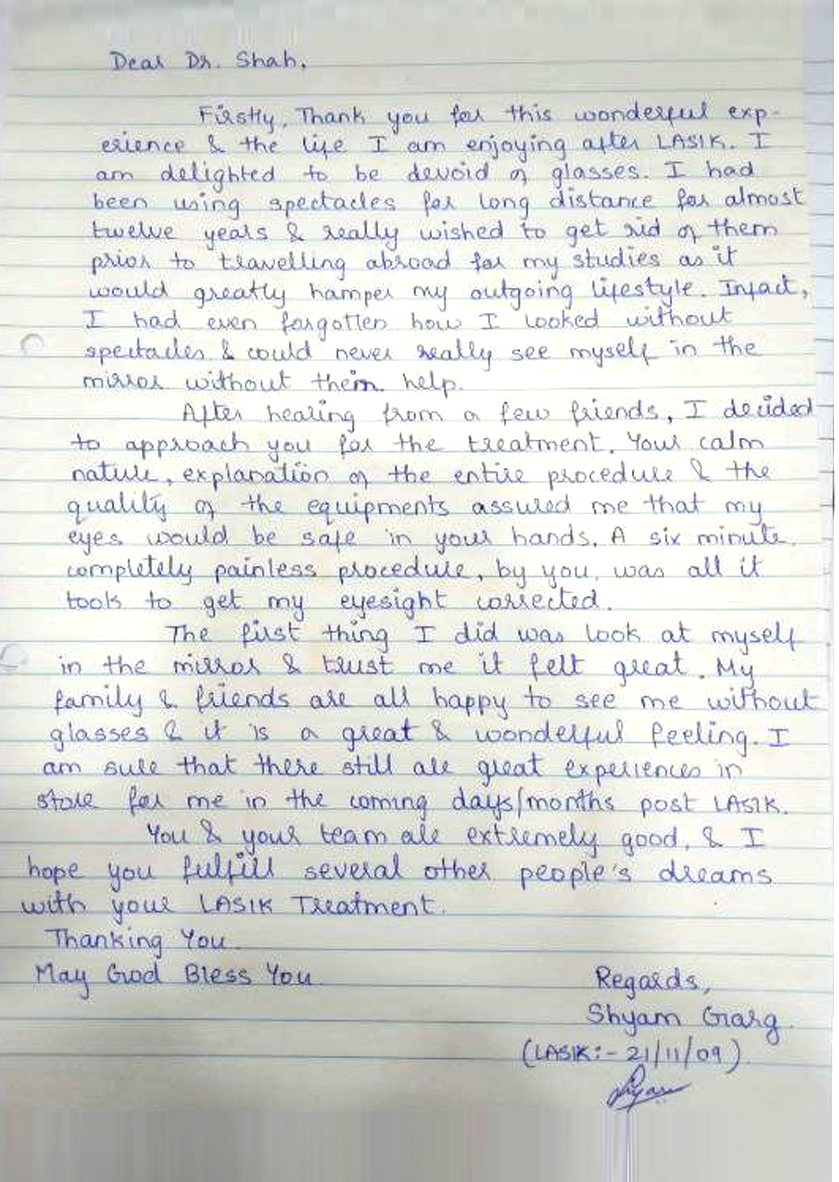 Dear Dr. Shah,
Firstly, Thank you for this wonderful exp-
erience & the life I am enjoying after LASIK. I
am delighted to be devoid of glasses. I had
been using spectacles for long distance for almost
twelve years & really wished to get rid of them
prior to travelling abroad for my studies as it
would greatly hamper my outgoing lifestyle. Infact,
I had even forgotten how I looked without
spectacles & could never really see myself in the
mirror without them help.
After hearing from a few friends, I decided
to approach you for the treatment. Your calm
nature, explanation of the entire procedure & the
quality of the equipments assured me that my
eyes would be safe in your hands. A six minute,
completely painless procedure, by you, was all it
took to get my eyesight corrected.
The first thing I did was look at myself
in the mirror & trust me it felt great. My
family & friends are all happy to see me without
glasses & it is a great & wonderful feeling. I
am sure that there still are great experiences in
store for me in the coming days/months post LASIK.
You & your team are extremely good, & I
hope you fulfill several other people's dreams
with your LASIK Treatment.
Thanking You.
May God Bless You
Regards,
Shyam Garg.
(LASIK:- 21/11/09)
Shyam